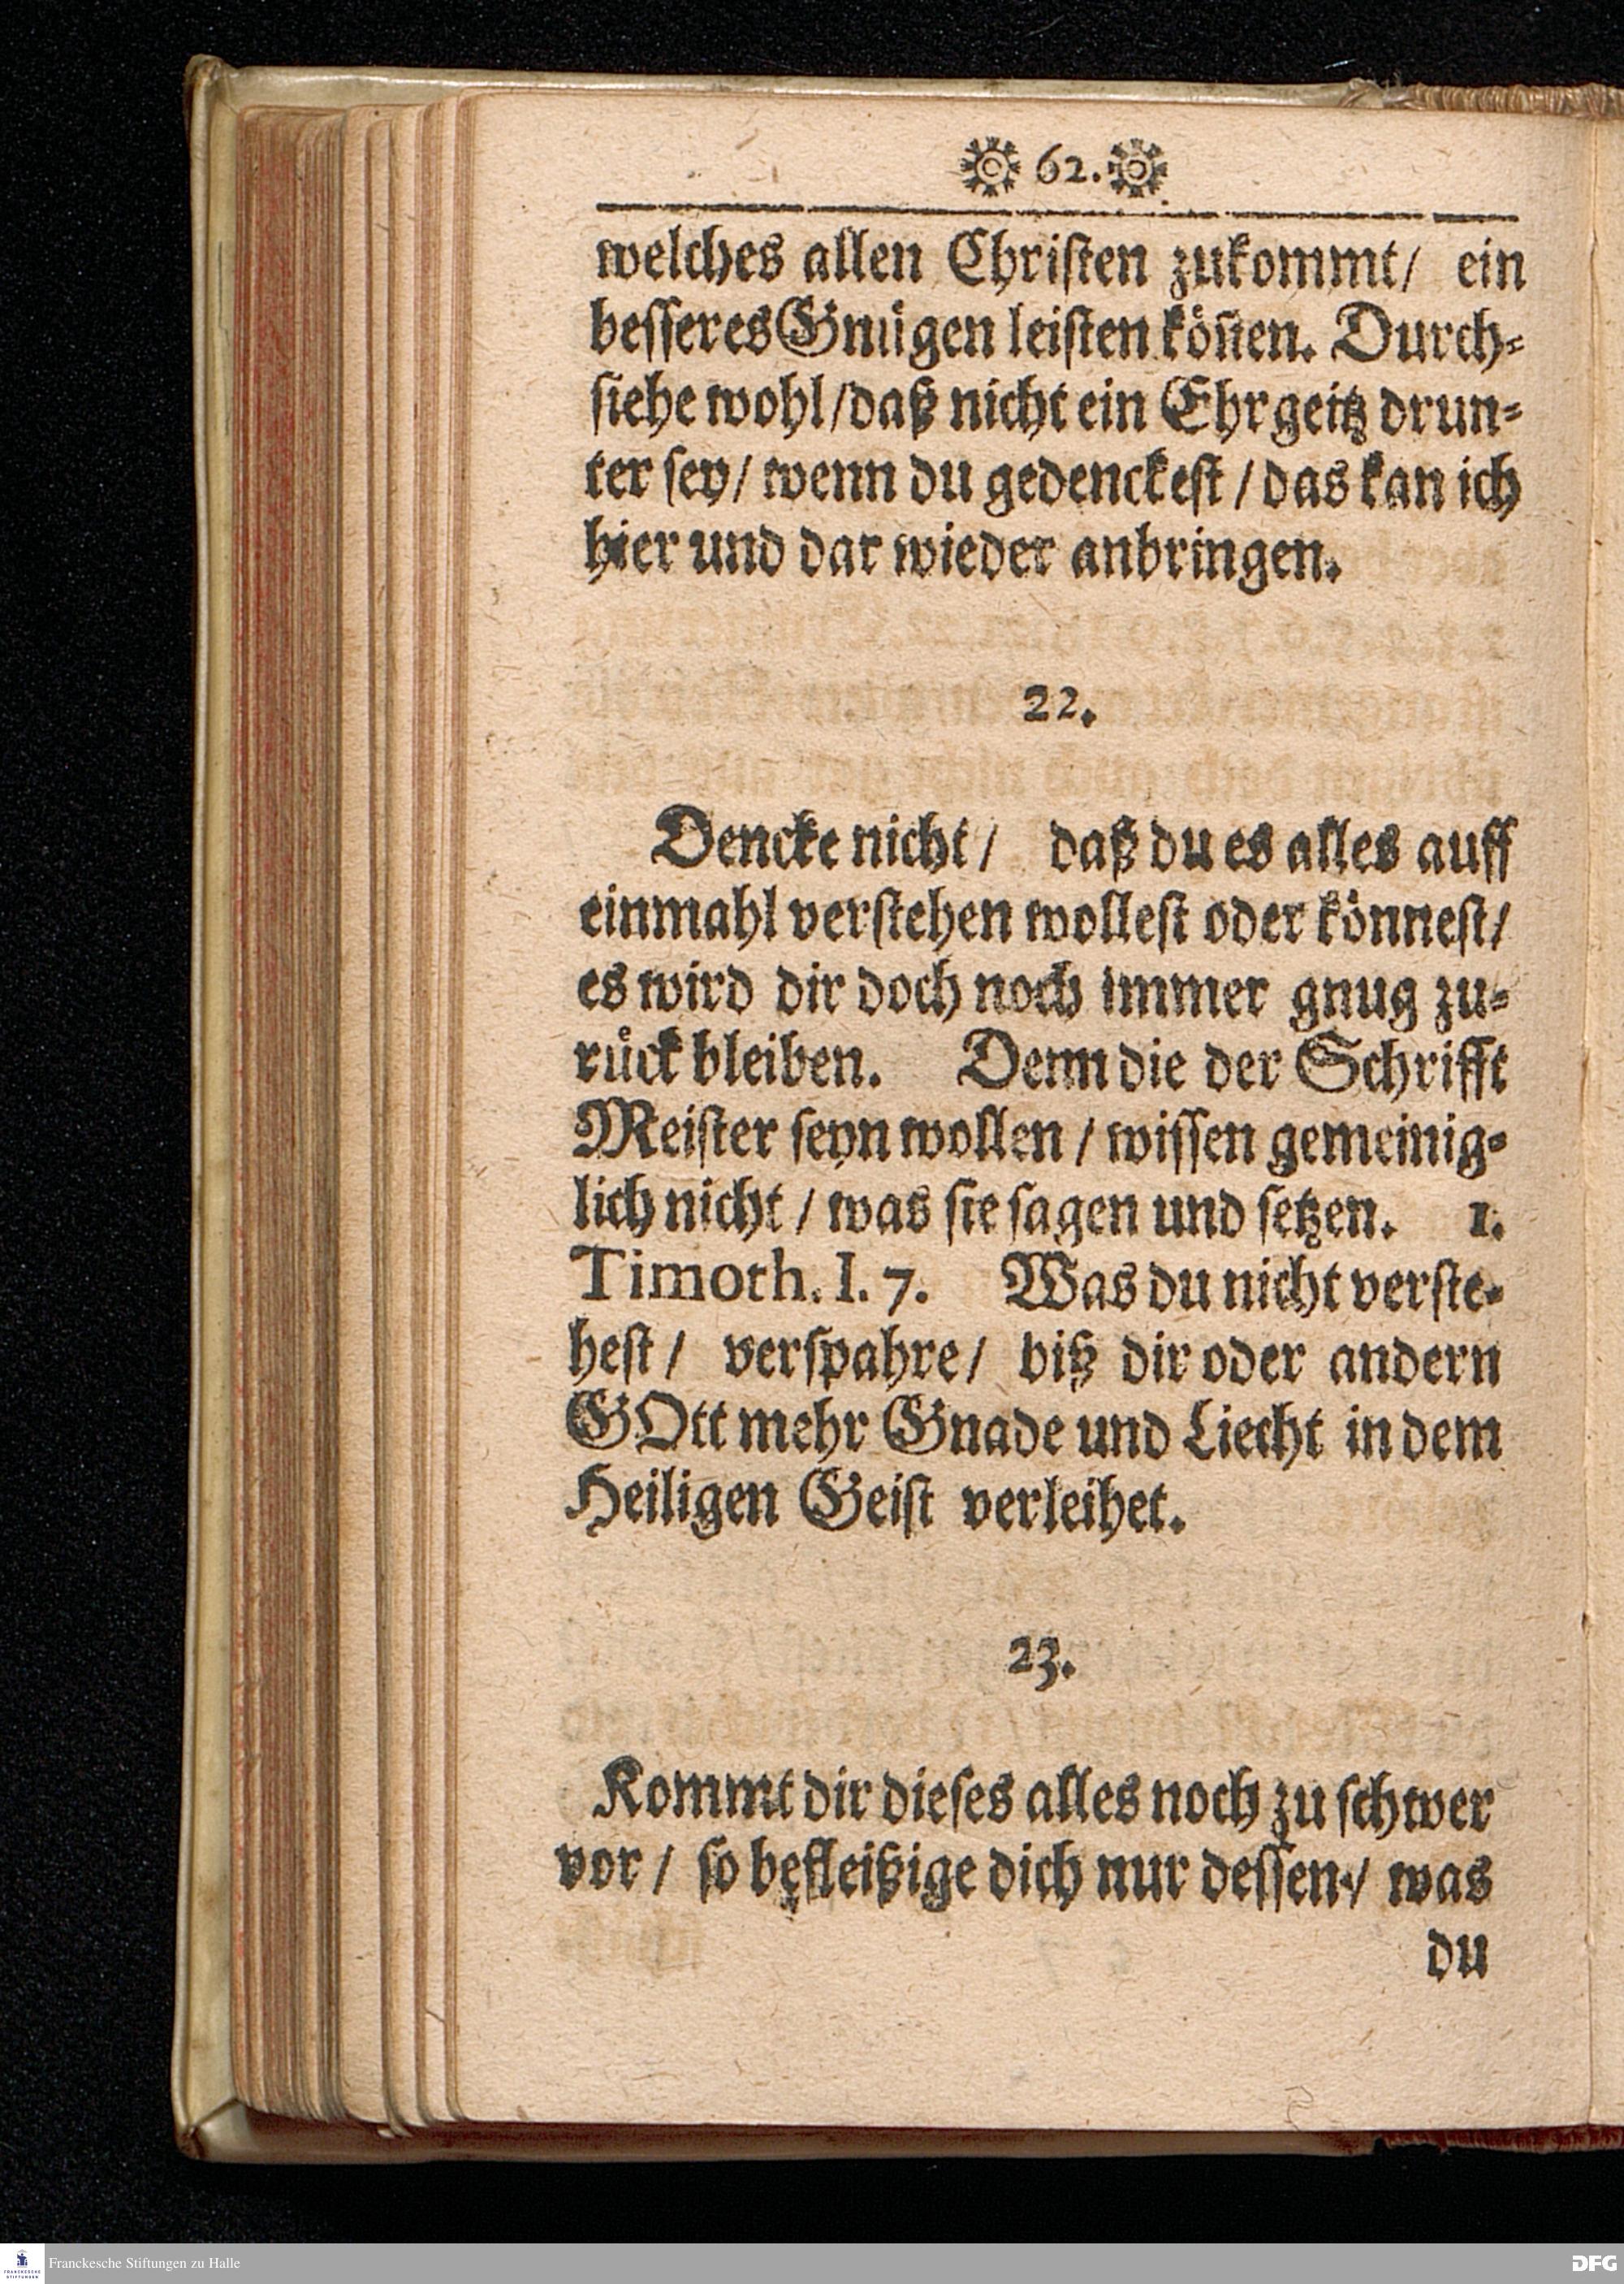 62.
welches allen Chriſten zukommt/ ein
beſſeres Gnuͤgen leiſten koͤñen. Durch⸗
ſiehe wohl/daß nicht ein Ehrgeitz drun⸗
ter ſey/ wenn du gedenckeſt / das kan ich
hier und dar wieder anbringen.
22.
Dencke nicht/ daß du es alles auff
einmahl verſtehen wolleſt oder koͤnneſt/
es wird dir doch noch immer gnug zu⸗
ruͤck bleiben. Denn die der Schrifft
Meiſter ſeyn wollen / wiſſen gemeinig⸗
lich nicht / was ſie ſagen und ſetzen. 1.
Timoth. I. 7. Was du nicht verſte⸗
heſt/ verſpahre/ biß dir oder andern
GOtt mehr Gnade und Liecht in dem
Heiligen Geiſt verleihet.
23.
Kommt dir dieſes alles noch zu ſchwer
vor / ſo befleißige dich nur deſſen/ was
du
FRANCKESCHE STIFTUNGEN
Franckesche Stiftungen zu Halle
DFG